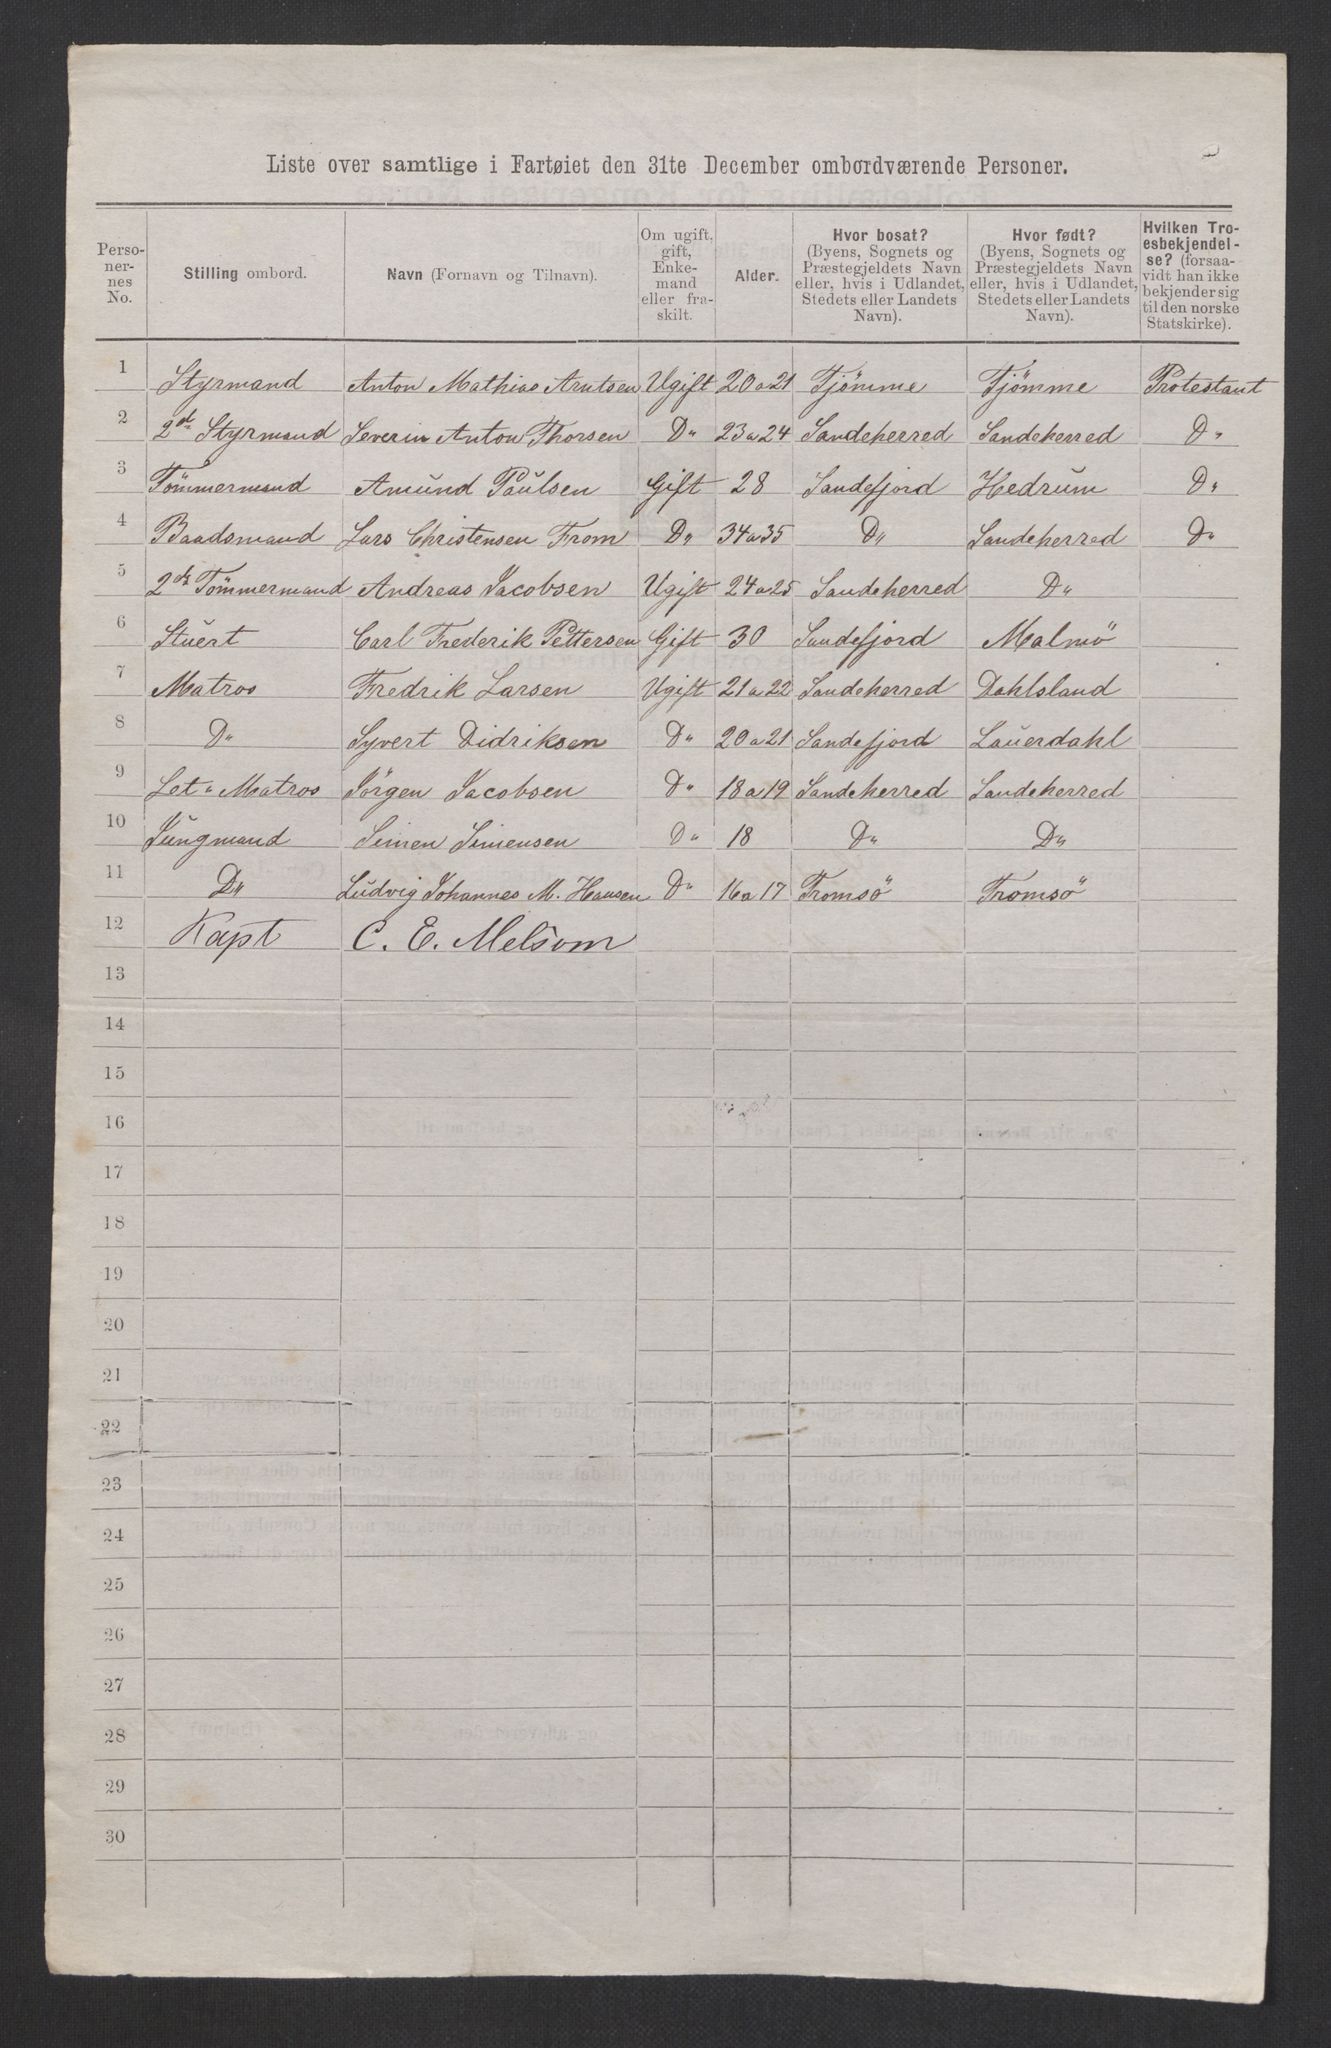 Liste over samtlige i Fartøiet den 31te December ombordværende Personer.
Perso-
ner-
nes
No.
Stilling ombord.
Navn (Fornavn og Tilnavn).
Om ugift,
gift,
Enke-
mand
eller fra-
skilt.
Alder.
Hvor bosat?
(Byens, Sognets og
Præstegjeldets Navn
eller, hvis i Udlandet,
Stedets eller Landets
Navn).
Hvor født?
(Byens, Sognets og
Præstegjeldets Navn
eller, hvis i Udlandet,
Stedets eller Landets
Navn).
Hvilken Tro-
esbekjendel-
se? (forsaa-
vidt han ikke
bekjender sig
til den norske
Statskirke).
1 Styrmand Anton Mathias Arntsen Ugift 20 a 21 Tjömme Tjömme Protestant
2 2d Styrmand Severin Anton Thorsen D" 23 a 24 Sandeherred Sandeherred D"
3 Tömmermand Amund Paulsen Gift 28 Sandefjord Hedrum D"
4 Baadsmand Lars Christensen From D" 34 a 35 D" Sandeherred D"
5 2de Tömmermand Andreas Jacobsen Ugift 24 a 25 Sandeherred D"
6 Stuert Carl Frederik Pettersen Gift 30 Sandefjord Malmö
7 Matros Fredrik Larsen Ugift 21 a 22 Sandeherred Dahlsland
8 D" Syvert Didriksen D" 20 a 21 Sandefjord Lauerdahl
9 Let" Matros Jörgen Jacobsen D" 18 a 19 Sandeherred Sandeherred
10 Jungmand Simen Simensen D" 18 D" D"
11 D" Ludvig Johannes M. Hansen D" 16 a 17 Tromsö Tromsö
12 Kapt C. E. Melsom
13
14
15
16
17
18
19
20
21
22
23
24
25
26
27
28
29
30